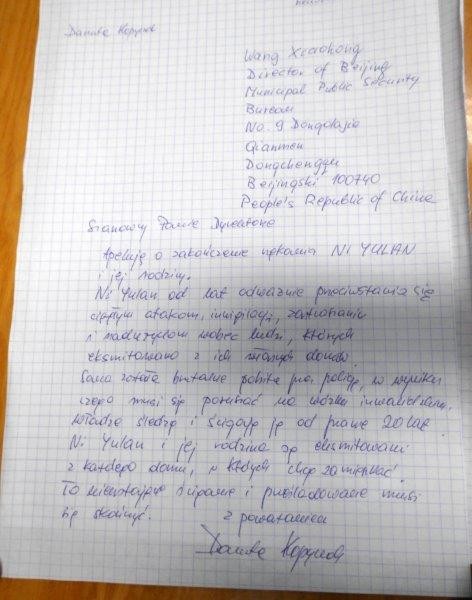 Danuta
Wang Xiaohong
Director of Beijing
Municipal Public Security
Bureau
No. 9 Dongdajie
Qianmen
Dongchengqu
Beijingshi 100740
People's Republic of China
Szanowny Panie Dyrektorze
Apeluję o zakończenie nękania NI YULAN
i jej rodziny.
Ni Yulan od lat odważnie przeciwstawia się
ciągłym atakom, inwigilacji, zastraszaniu
i nadużyciom wobec ludzi, których
eksmitowano z ich własnych domów.
Sama została brutalnie pobita przez policję, w wyniku
czego musi się poruszać na wózku inwalidzkim.
Władze śledzą i ścigają ją od prawie 20 lat.
Ni Yulan i jej rodzina są eksmitowani
z każdego domu, w których chcą zamieszkać.
To nieustające ściganie i prześladowanie musi
się skończyć.
z poważaniem
Danuta